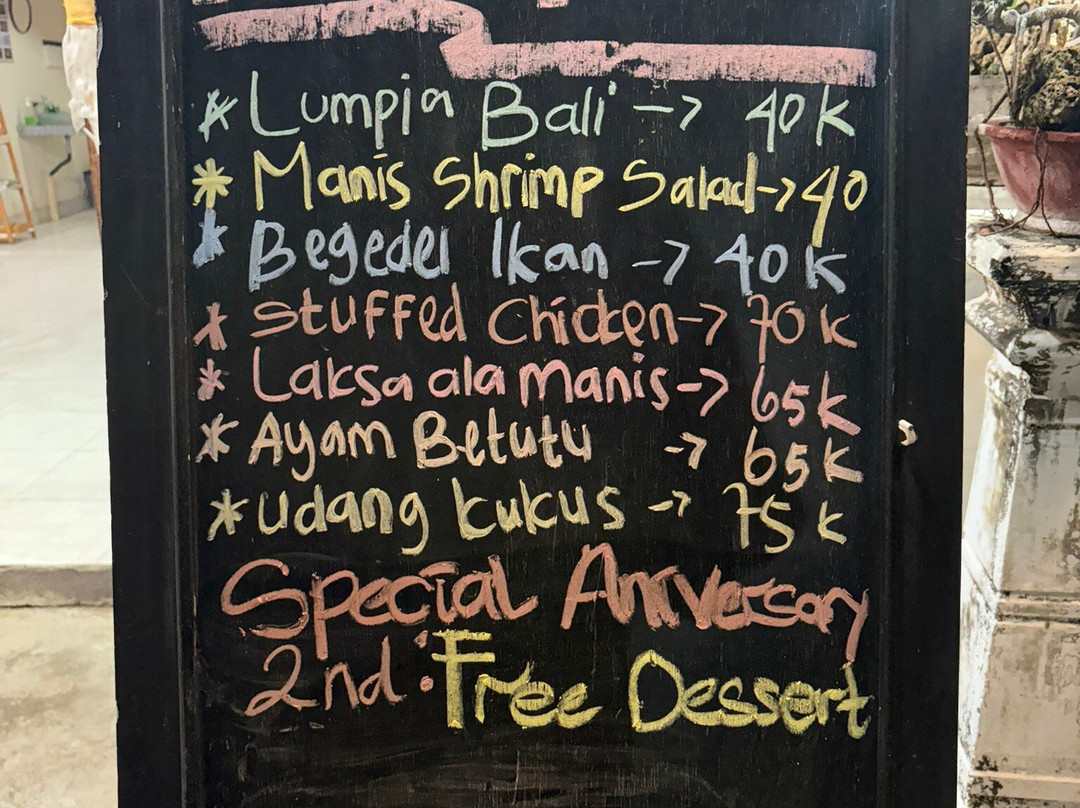 * Lumpia Bali -> 40 K
* Manis Shrimp Salad -> 40
* Begedel Ikan -> 40 K
* Stuffed Chicken -> 70 K
* Laksa ala manis -> 65k
* Ayam Betutu -> 65K
* Udang kukus -> 75 K
Special Aniversary
2nd : Free Dessert